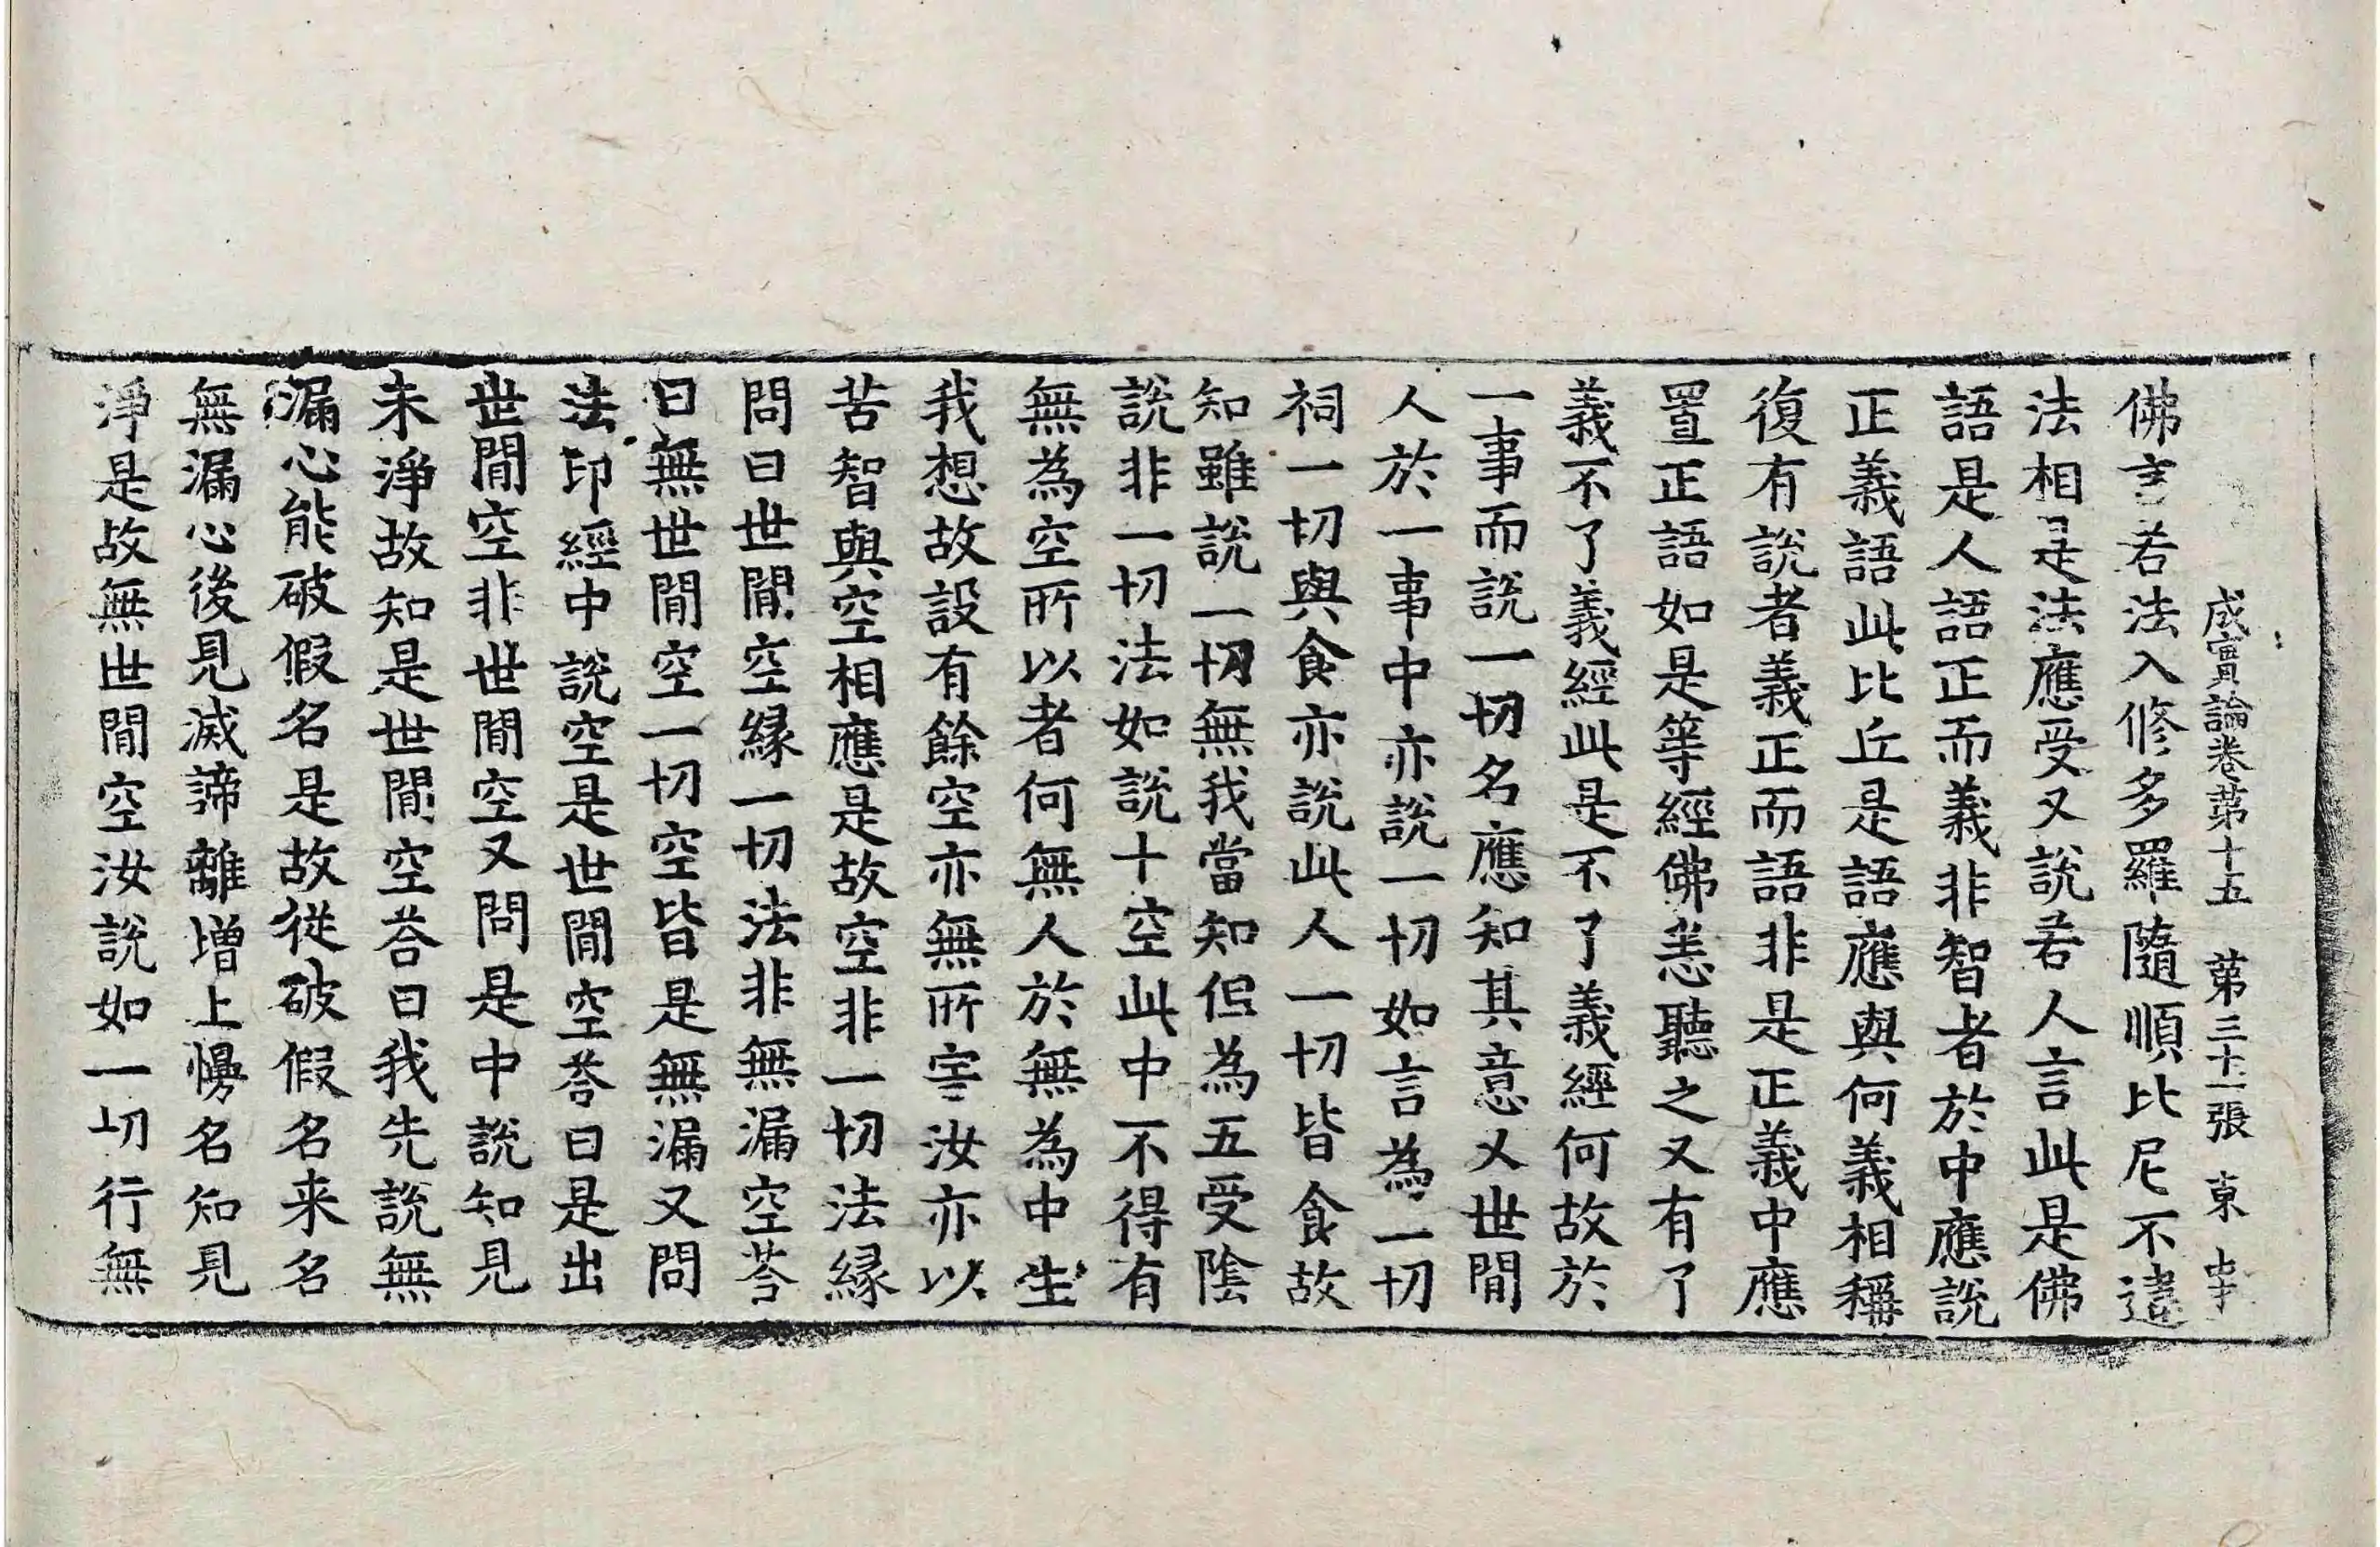 成實論卷第十五　第三十一張　東
佛言若法入修多羅隨順比尼不違
法相是法應受又說若人言此是佛
語是人語正而義非智者於中應說
正義語此比丘是語應與何義相稱
復有說者義正而語非是正義中應
置正語如是等經佛恚聽之又有了
義不了義經此是不了義經何故於
一事而說一切名應知其意又世間
人於一事中亦說一切如言為一切
祠一切與食亦說此人一切皆食故
知雖說一切無我當知但為五受陰
說非一切法如說十空此中不得有
無為空所以者何無人於無為中生
我想故設有餘空亦無所害汝亦以
苦智與空相應是故空非一切法緣
問曰世間空緣一切法非無漏空荅
曰無世間空一切空皆是無漏又問
法印經中說空是世間空荅曰是出
世間空非世間空又問是中說知見
未淨故知是世間空荅曰我先說無
漏心能破假名是故從破假名来名
無漏心後見滅諦離增上慢名知見
淨是故無世間空汝說如一切行無